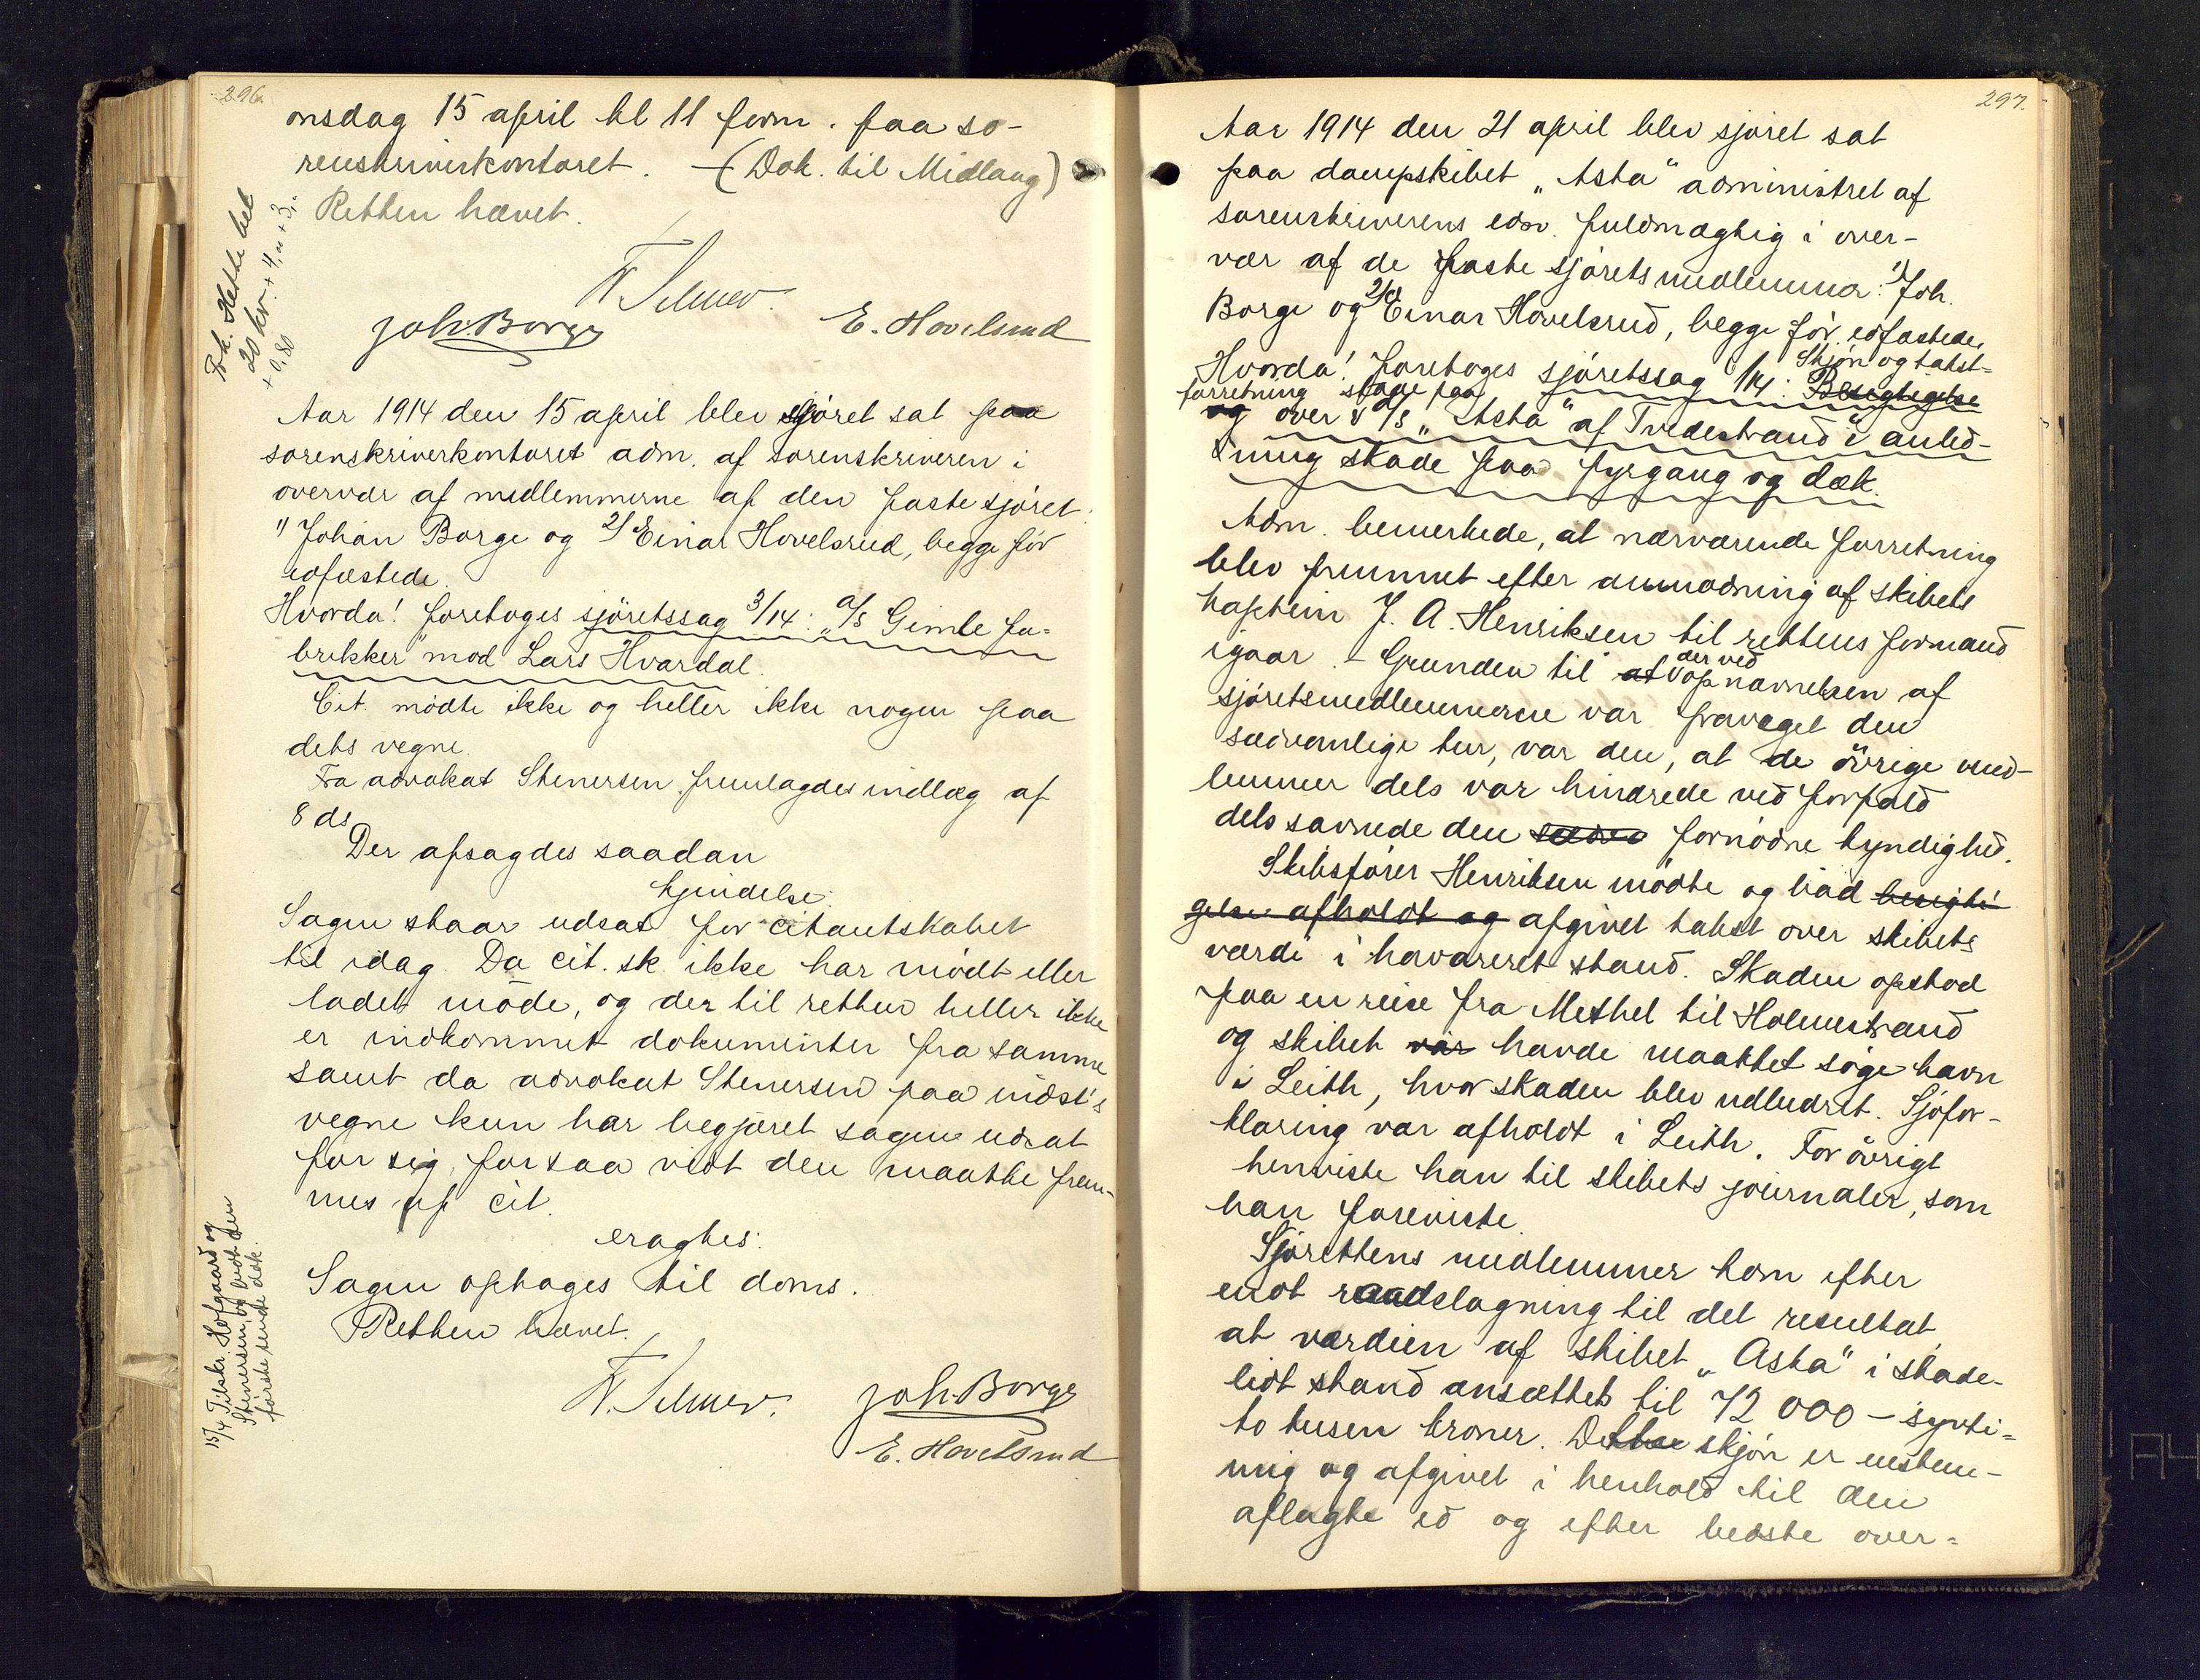 296
onsdag 15 april kl 11 form. paa so-
renskriverkontoret. - (Dok. til Midlaug)
Retten hævet.
Joh. Borge
E. Hovelsrud
20 kr. + 4,00 + 3,-
+ 0,80
Aar 1914 den 15 april blev sjøret sat paa
sorenskriverkontoret adm. af sorenskriveren i
overvær af medlemmerne af den faste sjøret
1) Johan Borge og 2) Einar Hovelsrud, begge før
edfæstede.
Hvorda! foretoges sjøretssag 3/14: "A/S Gimle fa-
brikker" mod Lars Hvardal.
Cit. mødte ikke og heller ikke nogen paa
dets vegne.
Fra advokat Stenersen fremlagdes indlæg af
8 ds
Der afsagdes saadan
kjendelse:
Sagen staar udsat for citantskabet
til idag. Da cit. sk. ikke har mødt eller
ladet møde, og der til retten heller ikke
er indkommet dokumenter fra samme
samt da advokat Stenersen paa indst's
vegne kun har begjæret sagen udsat
for sig, forsaa vidt den maatte frem-
mes af cit.
eragtes:
Sagen optages til doms.
Retten hævet.
Joh. Borge
E. Hovelsrud
15/4 Tilskr. Hofgaard og
Stenersen, og bedt den
første sende dok.
297.
Aar 1914 den 21 april blev sjøret sat
paa dampskibet „Asta" administret af
sorenskriverens edsv. fuldmægtig i over-
vær af de faste sjøretsmedlemmer: 1) Joh.
Borge og 2) Einar Hovelsrud, begge før edfæstede.
Hvorda! foretoges sjøretssag 1/14: Besigtigelse Skjøn og takst-
forretning
og over d/s „Asta" af Tvedestrand i anled-
ning skade paa fyrgang og dæk.
Adm. bemerkede, at nærværende forretning
blev fremmet efter anmodning af skibets
kaptein J. A. Henriksen til rettens formand
igaar. - Grunden til at der ved opnævnelsen af
sjøretsmedlemmerne var fraveget den
sædvanlige tur, var den, at de øvrige med-
lemmer dels var hindrede ved forfald
dels savnede den fornødne kyndighed.
Skibsfører Henriksen mødte og bad besigti-
gelse afholdt og afgivet takst over skibets
værdi i havareret stand. Skaden opstod
paa en reise fra Methel til Holmestrand
og skibet var havde maattet søge havn
i Leith, hvor skaden blev udbedret. Sjøfor-
klaring var afholdt i Leith. Forøvrigt
henviste han til skibets journaler, som
han foreviste.
Sjørettens medlemmer kom efter
endt raadslagning til det resultat
at værdien af skibet „Asta" i skade-
lidt stand ansættes til 72 000 - sytti-
to tusen kroner. Dette skjøn er enstem-
mig og afgivet i henhold til den
aflagte ed og efter bedste over-